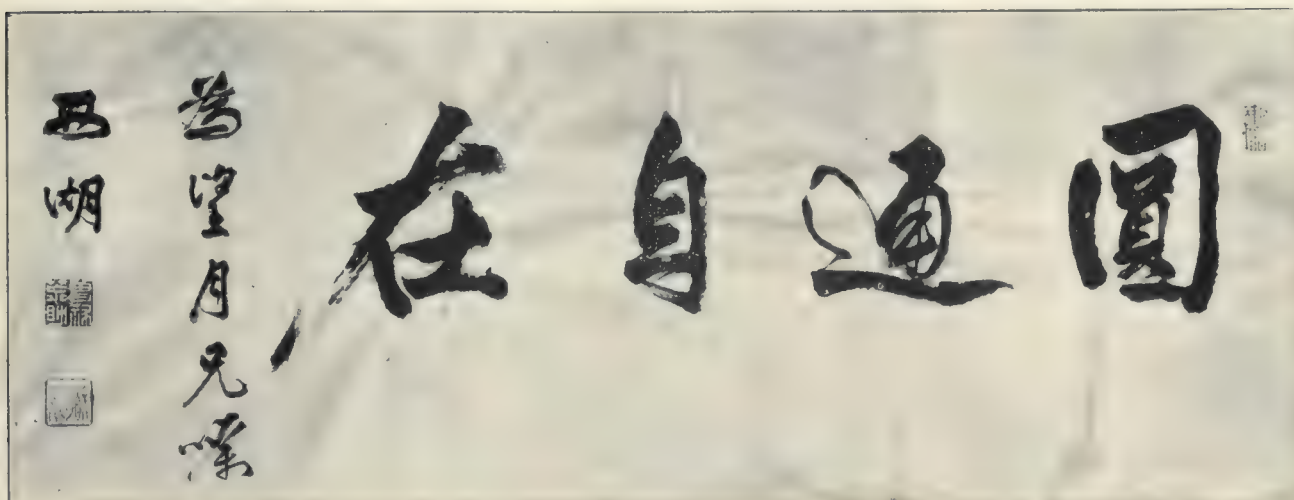 圓通自在
為望月兄嘱
西湖